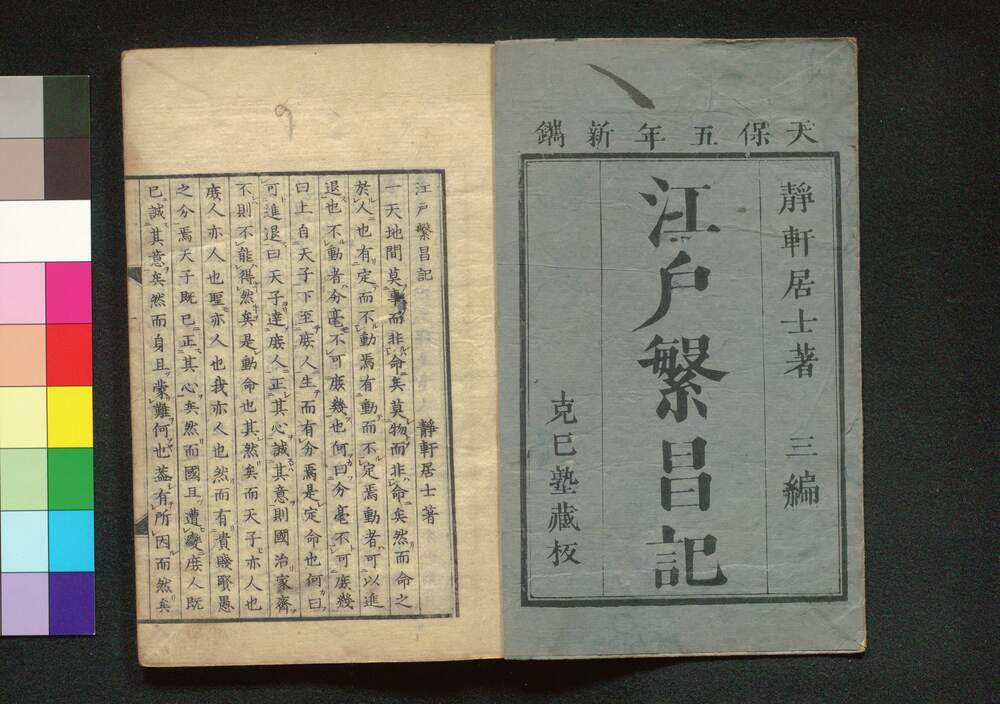 天保五年新鐫
靜軒居士著　三編
江戶繁昌記
克己塾藏板
江戶繁昌記　靜軒居士著
一天地間莫事而非命矣莫物而非命矣然而命之
於人也有定而不動焉有動而不定焉動者可以進
退也不動者分毫不可庶幾也何曰分毫不可庶幾
曰上自天子下至庶人生而有分焉是定命也何曰
可進退曰天子達庶人正其心誠其意則國治家齊
不則不能得然矣是動命也其然矣而天子亦人也
庶人亦人也聖亦人也我亦人也然而有貴賤賢愚
之分焉天子既已正其心矣然而國且遭變庶人既
已誠其意矣然而身且蒙難何也蓋有所因而然矣